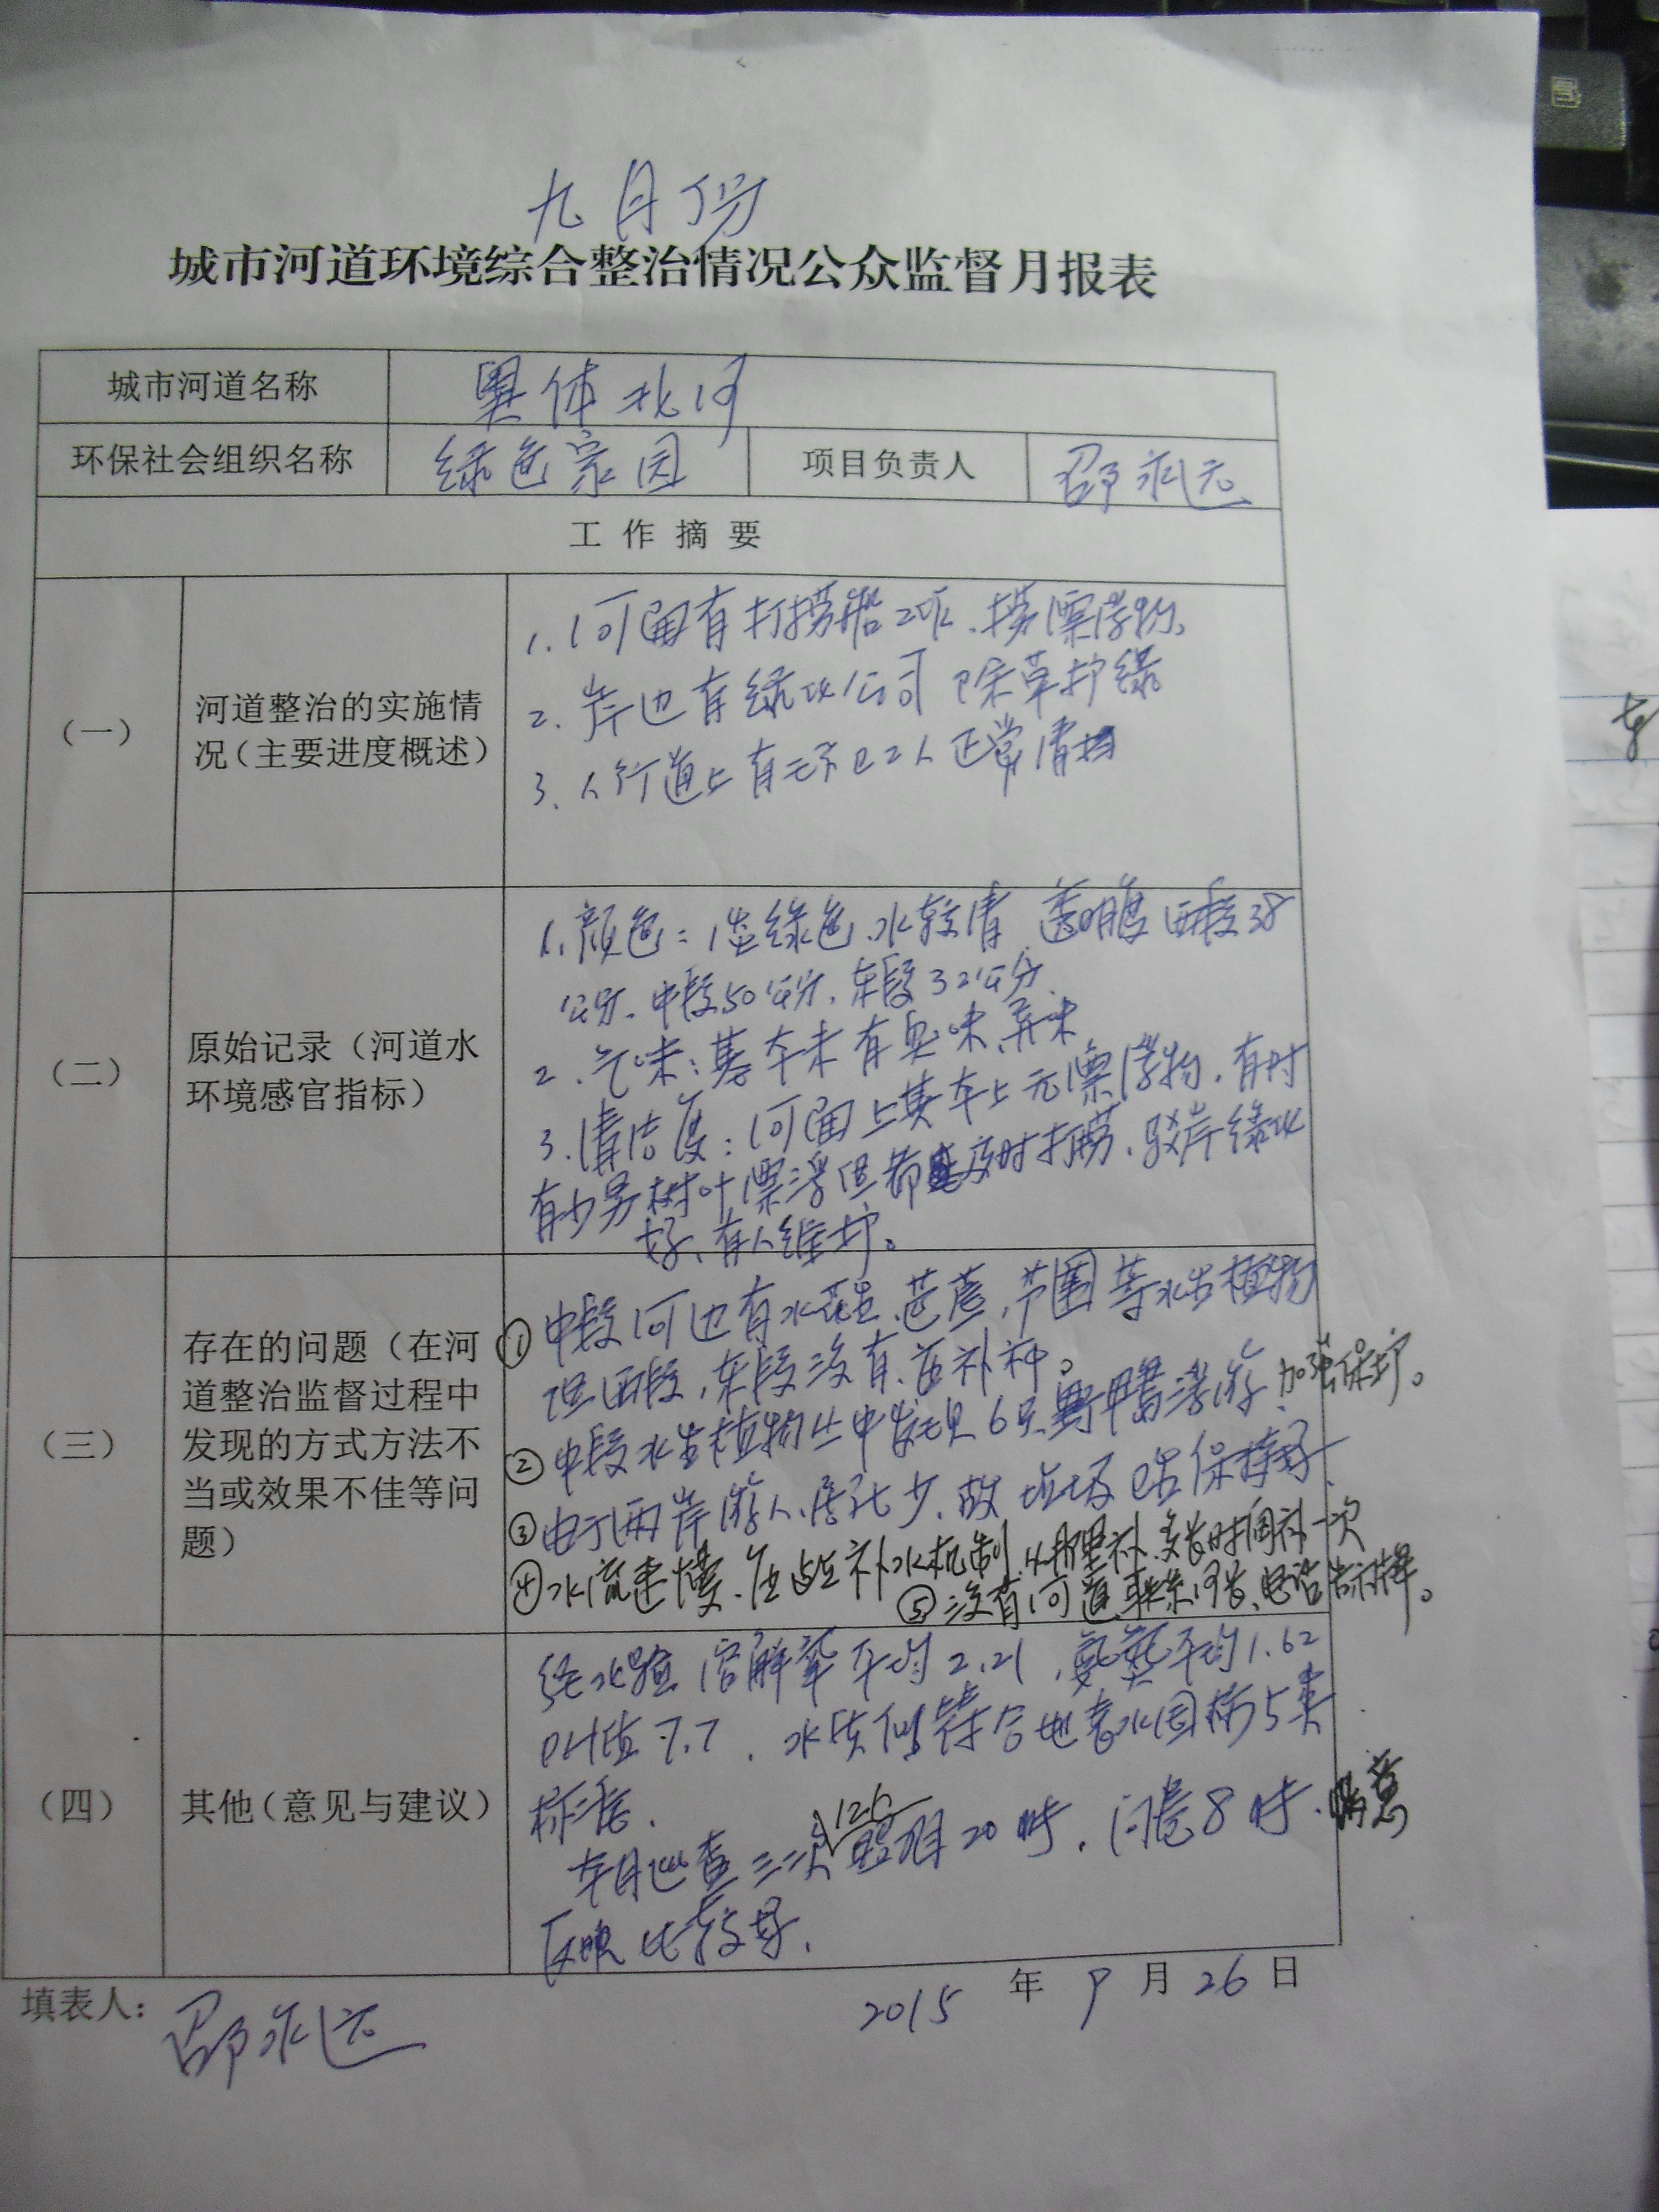 九月份
城市河道环境综合整治情况公众监督月报表
城市河道名称 奥体北河
环保社会组织名称 绿色家园 项目负责人 邵永远
工作摘要
(一) 河道整治的实施情况(主要进度概述)
1.河面有打捞船2次、捞漂浮物、
2.岸边有绿化公司除草护绿
3.人行道上有 2人正常清扫
(二) 原始记录(河道水环境感官指标)
1.颜色:淡绿色、水较清 透明度 西段38
公分、中段50公分、东段32公分.
2.气味:基本未有臭味、异味
3.清洁度:河面上基本上无漂浮物,有时
有少另树叶漂浮但都 及时打捞、驳岸绿化
好、有人维护。
(三) 存在的问题(在河道整治监督过程中发现的方式方法不当或效果不佳等问题)
①中段河边有水 、芦 等水生植物
但西段,东段没有、应补种。
②中段水生植物丛中发现6只野鸭 浮游、加强保护。
③由于两岸游人、居民少,故 保持好
④水流速慢、应 补水机制 补、 时间补一次
⑤没有河道联系河长、电话告示牌。
(四) 其他(意见与建议)
经水验溶解氧平均2.21,氨氮平均1.62
PH值7.7、水质 符合地表水国标5类
标准、
本月巡查三次 126 20 、问卷8 、满意
反映比较好、
填表人: 邵永远 2015年9月26日